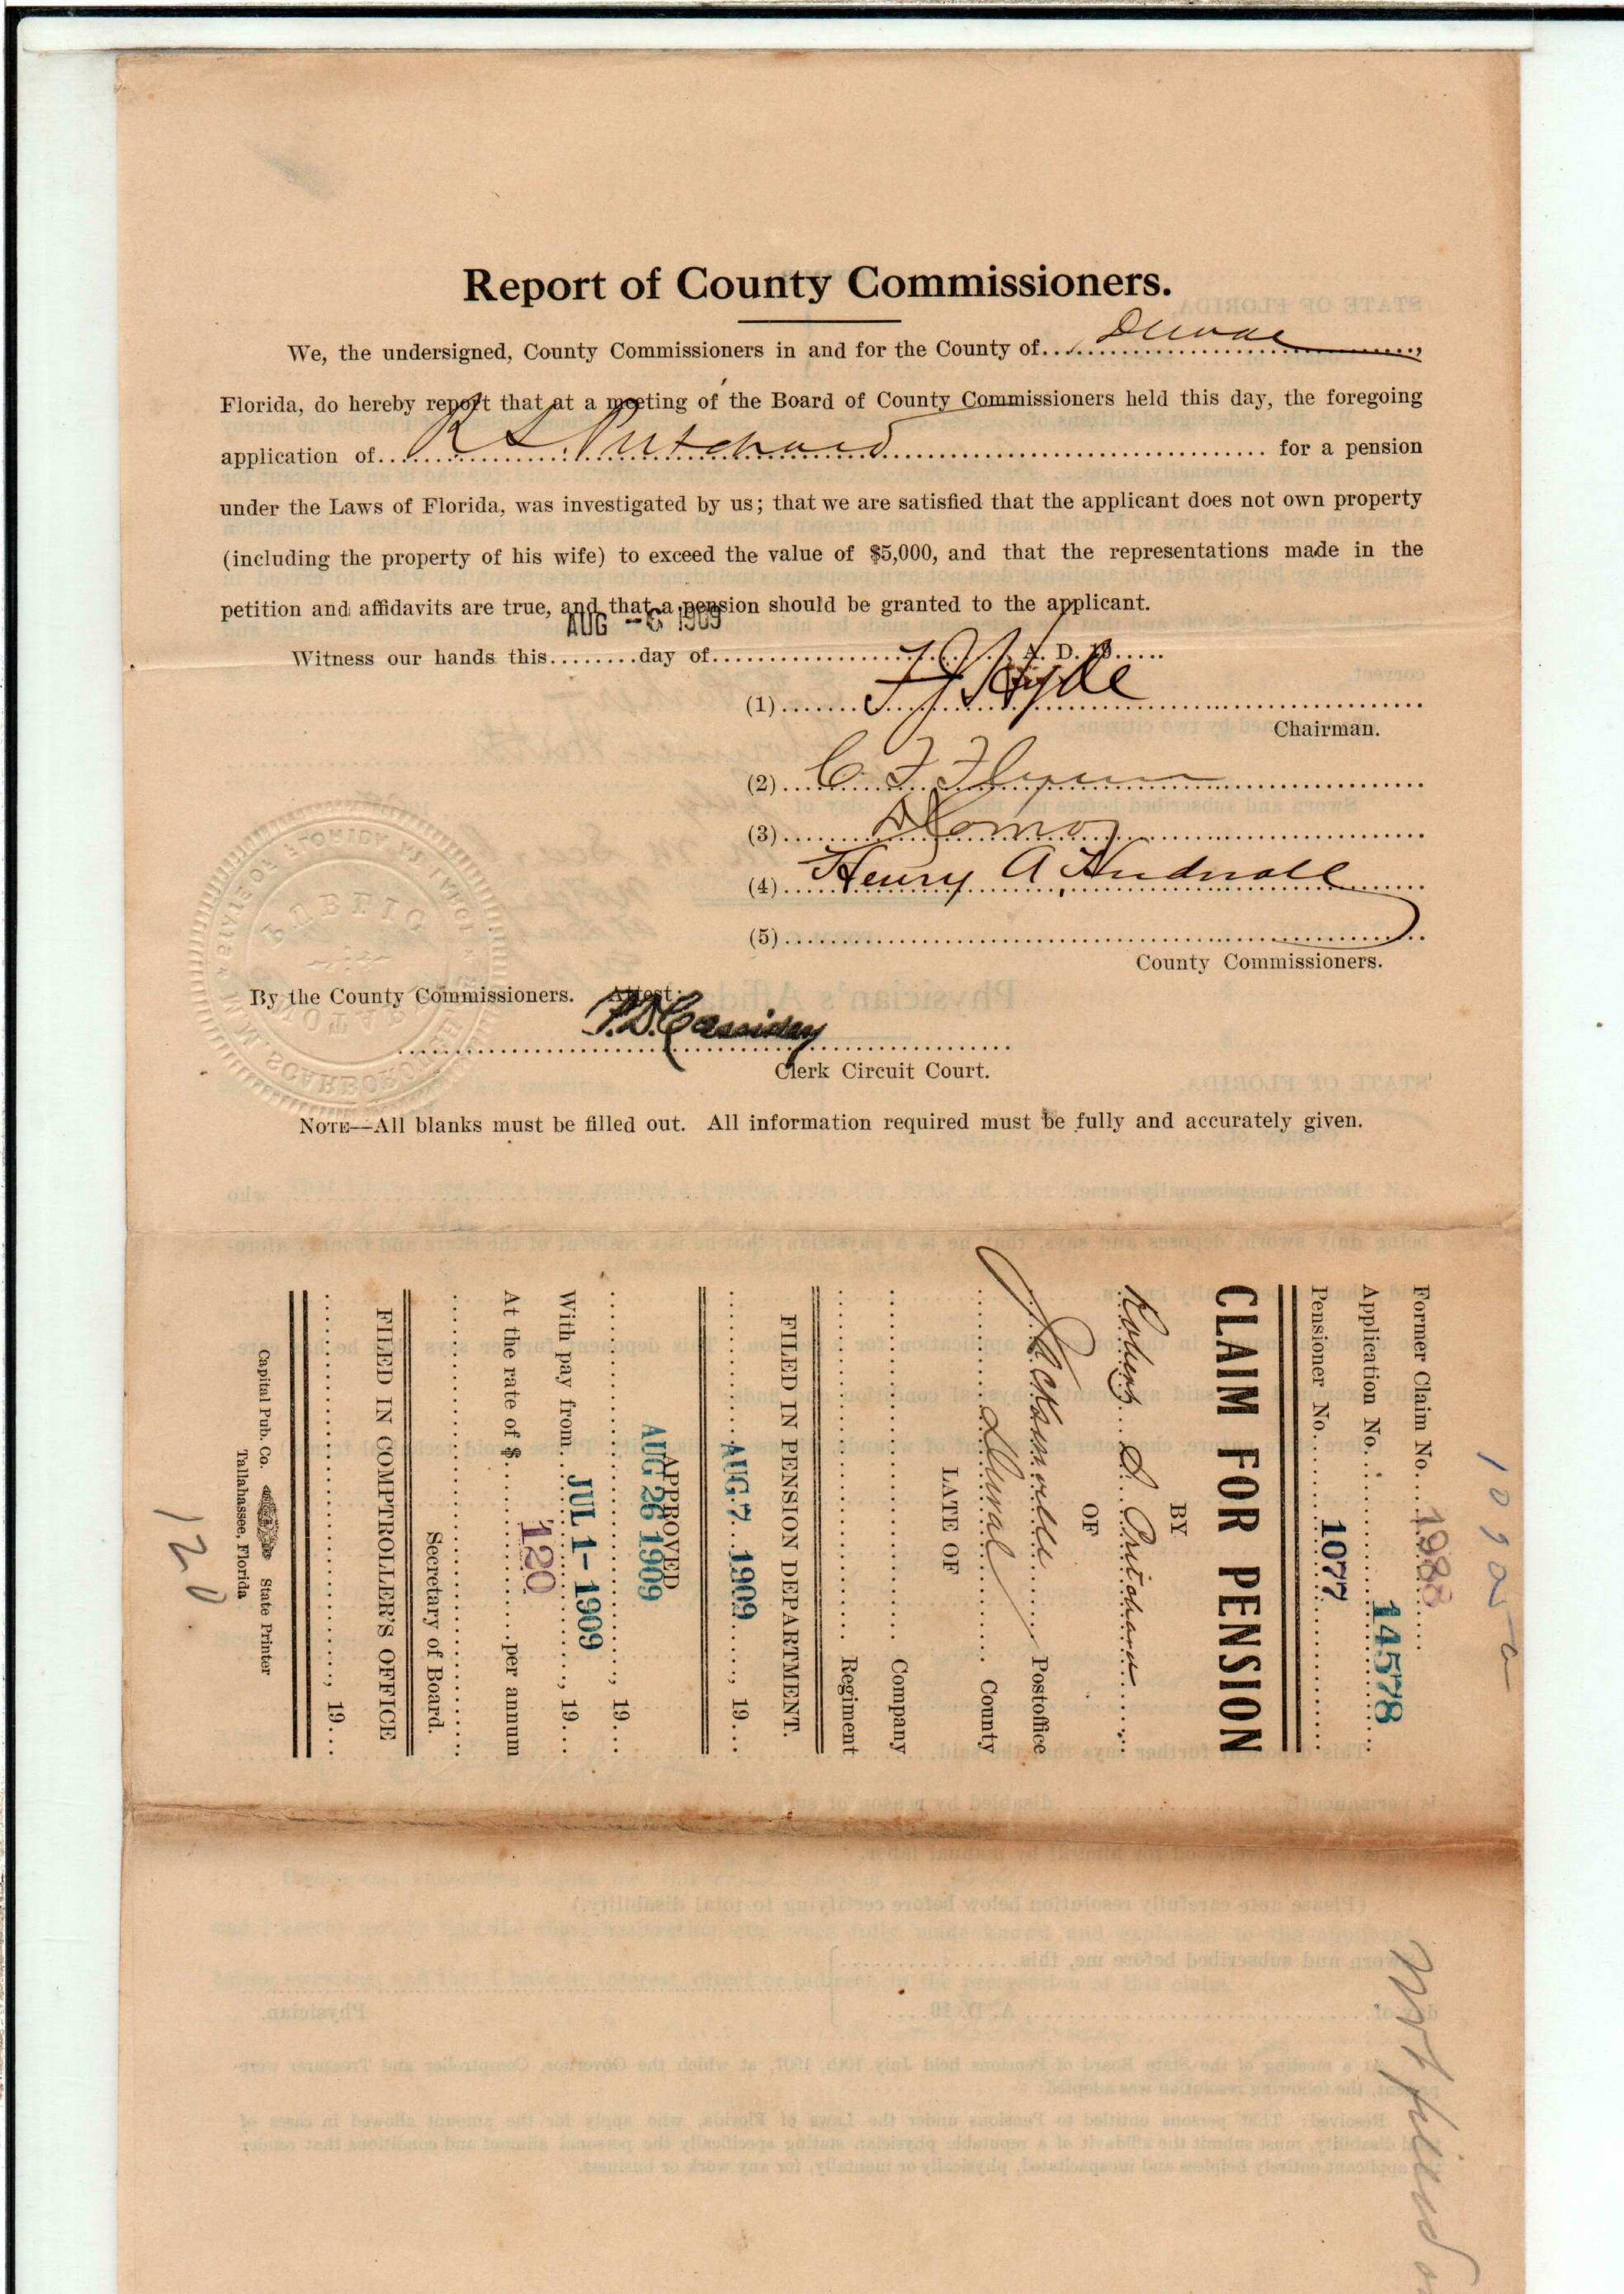 Report of County Commissioners.
We, the undersigned, County Commissioners in and for the County of Duval,
Florida, do hereby report that at a meeting of the Board of County Commissioners held this day, the foregoing
application of R S Pritchard for a pension
under the Laws of Florida, was investigated by us; that we are satisfied that the applicant does not own property
(including the property of his wife) to exceed the value of $5,000, and that the representations made in the
petition and affidavits are true, and that a pension should be granted to the applicant.
AUG -6 1909
Witness our hands this........day of.............................., A. D. 19.....
(1) F J Hyde
Chairman.
(2) C. F. Flynn
(3)
(4) Henry A Hudnall
(5)
County Commissioners.
By the County Commissioners. Attest:
P.D. Cassidey
Clerk Circuit Court.
NOTE—All blanks must be filled out. All information required must be fully and accurately given.
PUBLIC
NOTARY
STATE OF FLORIDA
SCARBOROUGH
1090
Former Claim No. 1988
Application No. 14578
Pensioner No. 1077
CLAIM FOR PENSION
BY
Robert S. Pritchard
OF
Jacksonville Postoffice
Duval County
LATE OF
Company
Regiment
FILED IN PENSION DEPARTMENT.
AUG 7 1909, 19...
APPROVED
AUG 26 1909
, 19...
With pay from JUL 1-1909, 19...
At the rate of $ 120 per annum
Secretary of Board.
FILED IN COMPTROLLER'S OFFICE
, 19...
Capital Pub. Co. State Printer
Tallahassee, Florida
120
Not filed